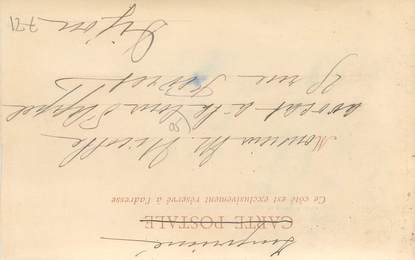 Imprimé
CARTE POSTALE
Ce côté est exclusivement réservé à l'adresse
Monsieur M. Nicolle
avocat à la Cour d'Appel
rue
Dijon